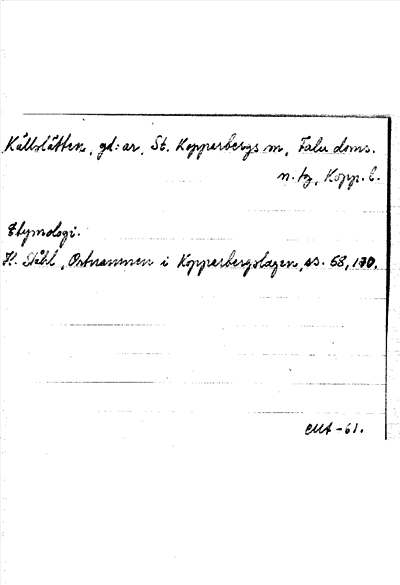 Källslätten, gd:ar, St. Kopparbergs sn, Falu doms.
n. tg, Kopp. l.
Etymologi.
H. Ståhl, Ortnamnen i Kopparbergslagen, ss. 68, 170.
EMA-61.